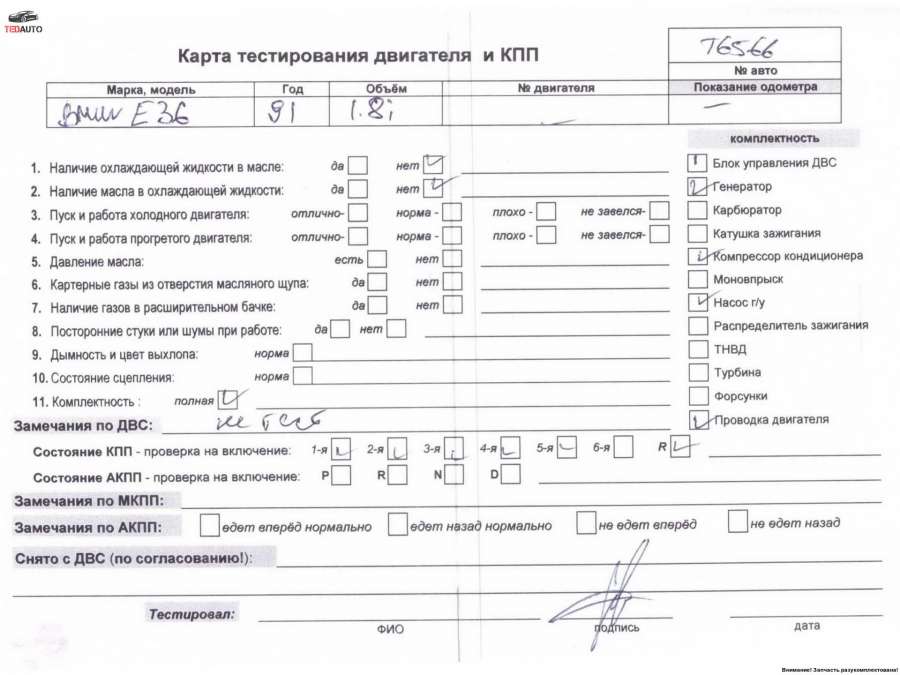 TEDAUTO
Карта тестирования двигателя и КПП
76566
№ авто
Марка, модель Год Объём № двигателя Показание одометра
BMW E36 91 1.8i - -
комплектность
1. Наличие охлаждающей жидкости в масле: да нет
2. Наличие масла в охлаждающей жидкости: да нет
3. Пуск и работа холодного двигателя: отлично- норма - плохо - не завелся-
4. Пуск и работа прогретого двигателя: отлично- норма - плохо - не завелся-
5. Давление масла: есть нет
6. Картерные газы из отверстия масляного щупа: да нет
7. Наличие газов в расширительном бачке: да нет
8. Посторонние стуки или шумы при работе: да нет
9. Дымность и цвет выхлопа: норма
10. Состояние сцепления: норма
11. Комплектность : полная
Блок управления ДВС
Генератор
Карбюратор
Катушка зажигания
Компрессор кондиционера
Моновпрыск
Насос г/у
Распределитель зажигания
ТНВД
Турбина
Форсунки
Проводка двигателя
Замечания по ДВС: не тест
Состояние КПП - проверка на включение: 1-я 2-я 3-я 4-я 5-я 6-я R
Состояние АКПП - проверка на включение: P R N D
Замечания по МКПП:
Замечания по АКПП: едет вперёд нормально едет назад нормально не едет вперёд не едет назад
Снято с ДВС (по согласованию!):
Тестировал:
ФИО подпись дата
Внимание! Запчасть разукомплектована!